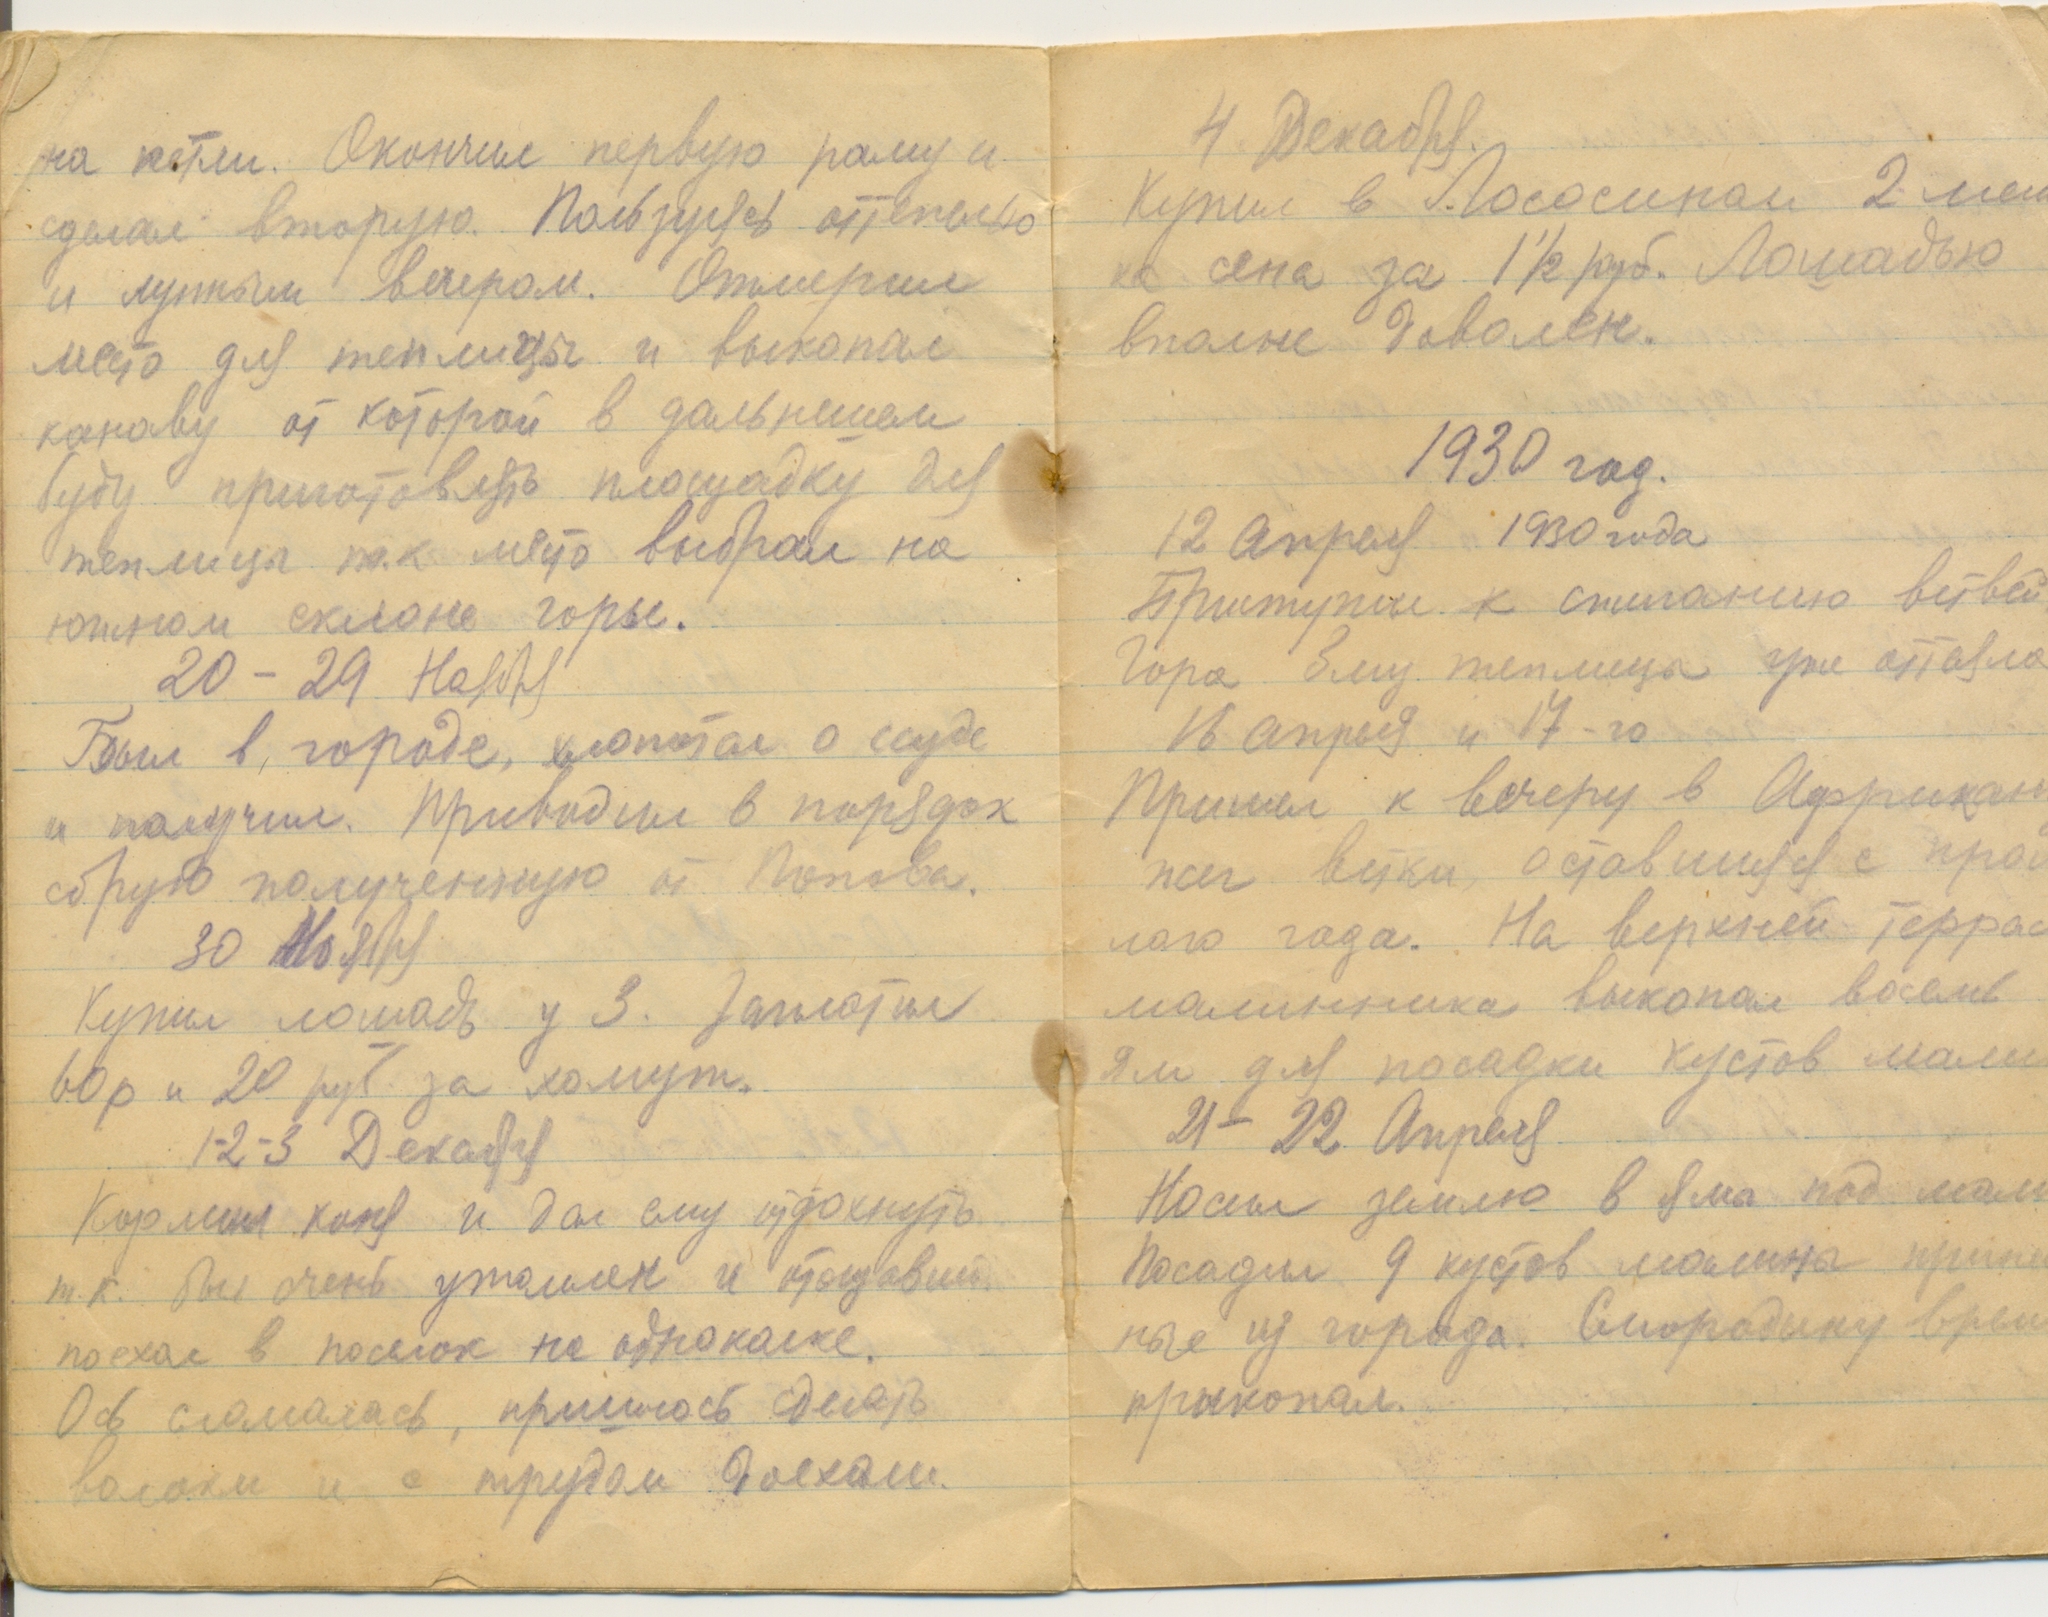 на петли. Окончил первую раму и
сделал вторую. Пользуясь оттепелью
и лунным вечером. Отмерил
место для теплицы и выкопал
канаву от которой в дальнешем
буду приготовлять площадку для
теплицы т.к место выбрал на
южном склоне горы.
20 – 29 Ноября
Был в городе, хлопотал о ссуде
и получил. Приводил в порядок
сбрую полученную от Попова.
30 Ноября
Купил лошадь у З. Заплатил
60р и 20 руб за хомут.
1-2-3 Декабря
Кормил коня и дал ему отдохнуть
т.к. был очень утомлен и отощавши
поехал в поселок на одноколке.
Ось сломалась, пришлось сделать
волоки и с трудом доехали.
4 Декабря.
Купил в Лососинном 2 меш
ка сена за 1 1/2 руб. Лошадью
вполне доволен.
1930 год.
12 Апреля 1930 года
Приступил к сжиганию ветвей
Гора близ теплицы уже оттаяла
16 апреля и 17-го
Пришел к вечеру в Африкан
жег ветки, оставшияся с прош
лого года. На верхней террас
малинника выкопал восемь
ям для посадки кустов мали
21 – 22 Апреля
Носил землю в ямы под мали
Посадил 9 кустов малины принесен
ные из города. Смородину врем
прикопал.